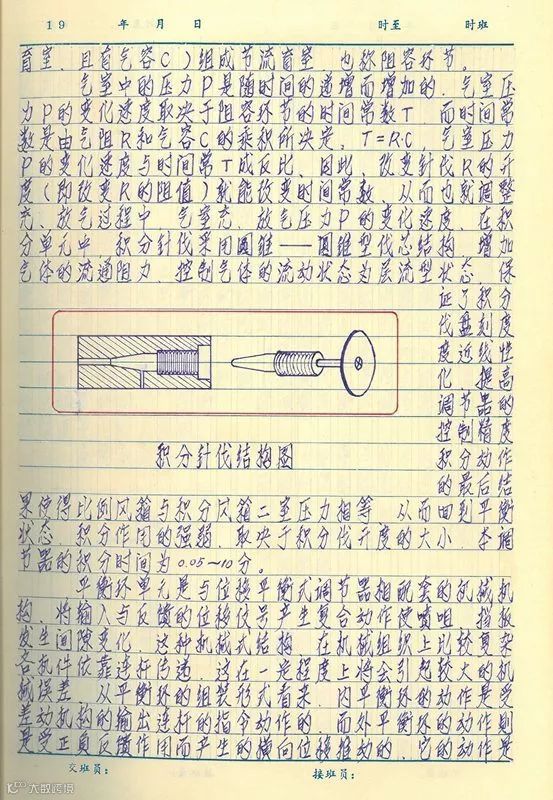 19 年 月 日 时至 时班
盲室、且有气容C）组成节流盲室 也称阻容环节。
气室中的压力P是随时间的递增而增加的. 气室压
力P的变化速度取决于阻容环节的时间常数T 而时间常
数是由气阻R和气容C的乘积所决定, T=R·C 气室压力
P的变化速度与时间常T成反比. 因此, 改变针伐R的开
度(即改变R的阻值)就能改变时间常数 从而也就调整
充、放气过程中 气室充 放气压力P的变化速度. 在积
分单元中 积分针伐采用圆锥——圆锥型伐芯结构 增加
气体的流通阻力. 控制气体的流动状态为层流型状态 保
证了积分
伐盘刻度
度近线性
化 提高
调节器的
控制精度
积分动作
的最后结
积分针伐结构图
果使得比例风箱与积分风箱二室压力相等 从而回到平衡
状态. 积分作用的强弱. 取决于积分伐开度的大小. 本调
节器的积分时间为0.05~10分。
平衡环单元是与位移平衡式调节器相配套的机械机
构. 将输入与反馈的位移信号产生复合动作使喷咀 挡板
发生间隙变化. 这种机械式结构. 在机械组织上比较复杂
各机件依靠连杆传递. 这在一定程度上将会引起较大的机
械误差. 从平衡环的组装形式看来. 内平衡环的动作是受
差动机构的输出连杆的指令动作的 而外平衡环的动作则
是受正负反馈作用而产生的横向位移推动的. 它的动作是
交班员： 接班员：
大数跨境